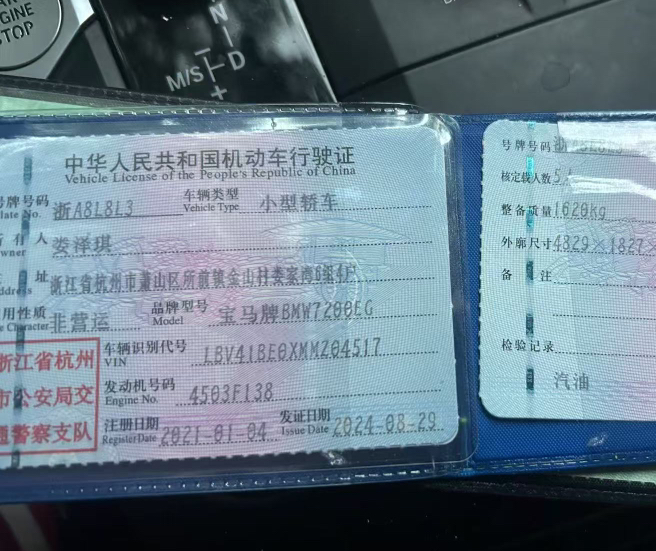 ENGINE
STOP
N
M/S D
+
中华人民共和国机动车行驶证
Vehicle License of the People's Republic of China
号牌号码 浙A8L8L3 车辆类型 小型轿车
Plate No. Vehicle Type
所有人 娄泽琪
Owner
住址 浙江省杭州市萧山区所前镇金山村娄家湾6组4户
Address
使用性质 非营运 品牌型号 宝马牌BMW7200EG
Use Character Model
浙江省杭州
市公安局交
通警察支队
车辆识别代号 LBV41BE0XMMZ04517
VIN
发动机号码 4503F138
Engine No.
注册日期 2021-01-04 发证日期 2024-08-29
Register Date Issue Date
号牌号码
核定载人数 5人
整备质量 1620kg
外廓尺寸 4829×1827×
备注
检验记录
汽油